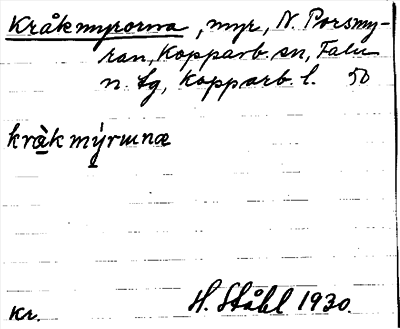 Kråkmyrorna, myr, N. Porsmy-
ran, Kopparb. sn, Falu
n. tg, Kopparb. l. 50
kràkmýrunæ
H. Ståhl 1930.
Kr.